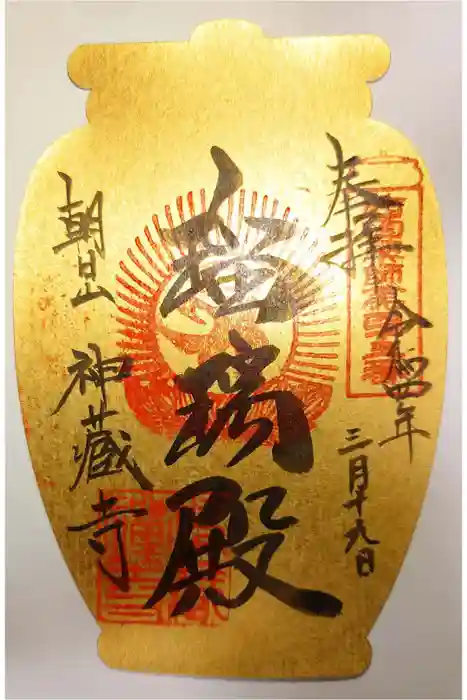 奉拝
令和四年
三月十九日
瑠璃殿
朝日山
神蔵寺